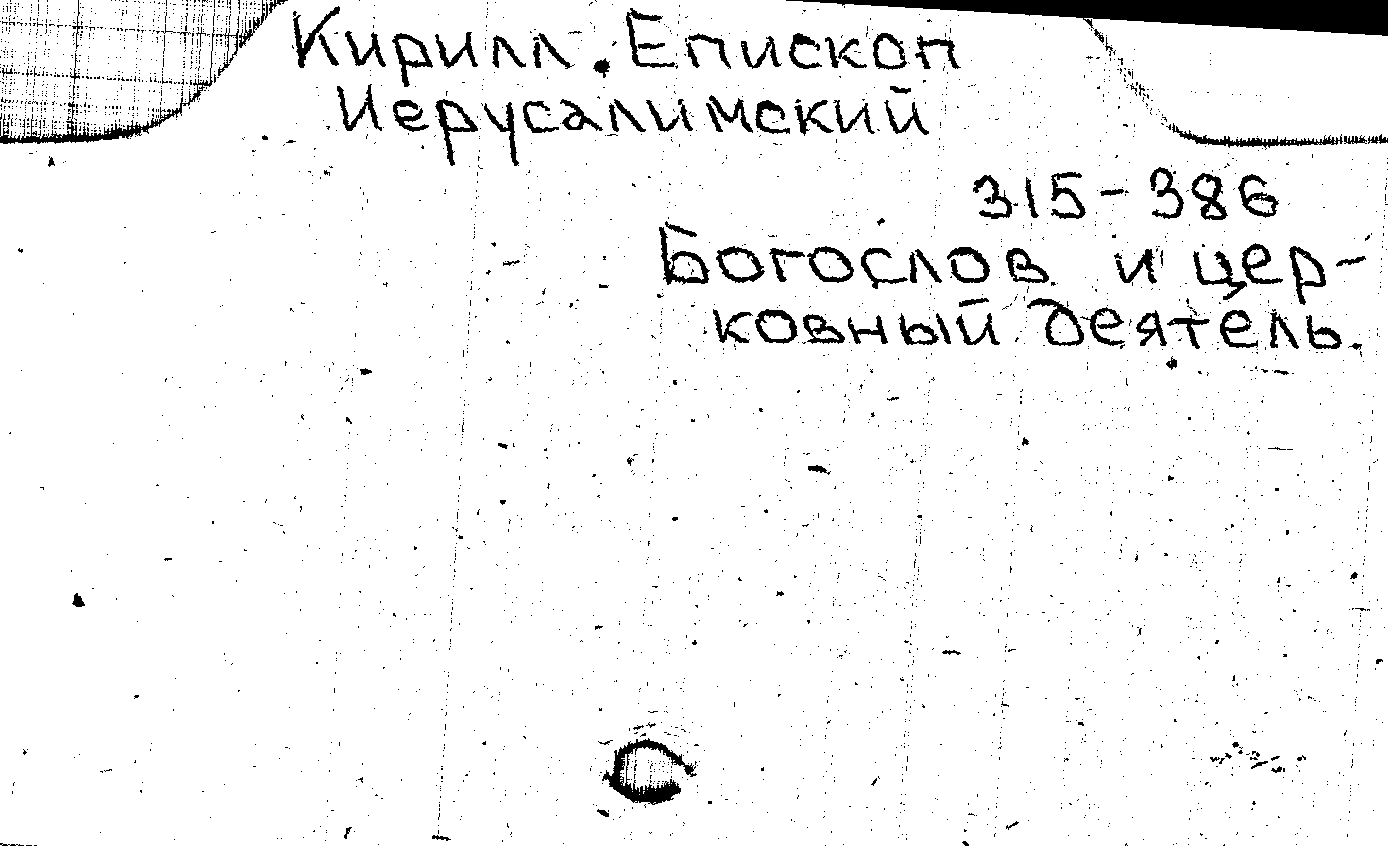 Кирилл. Епископ
Иерусалимский
315-386
Богослов и цер-
ковный деятель.